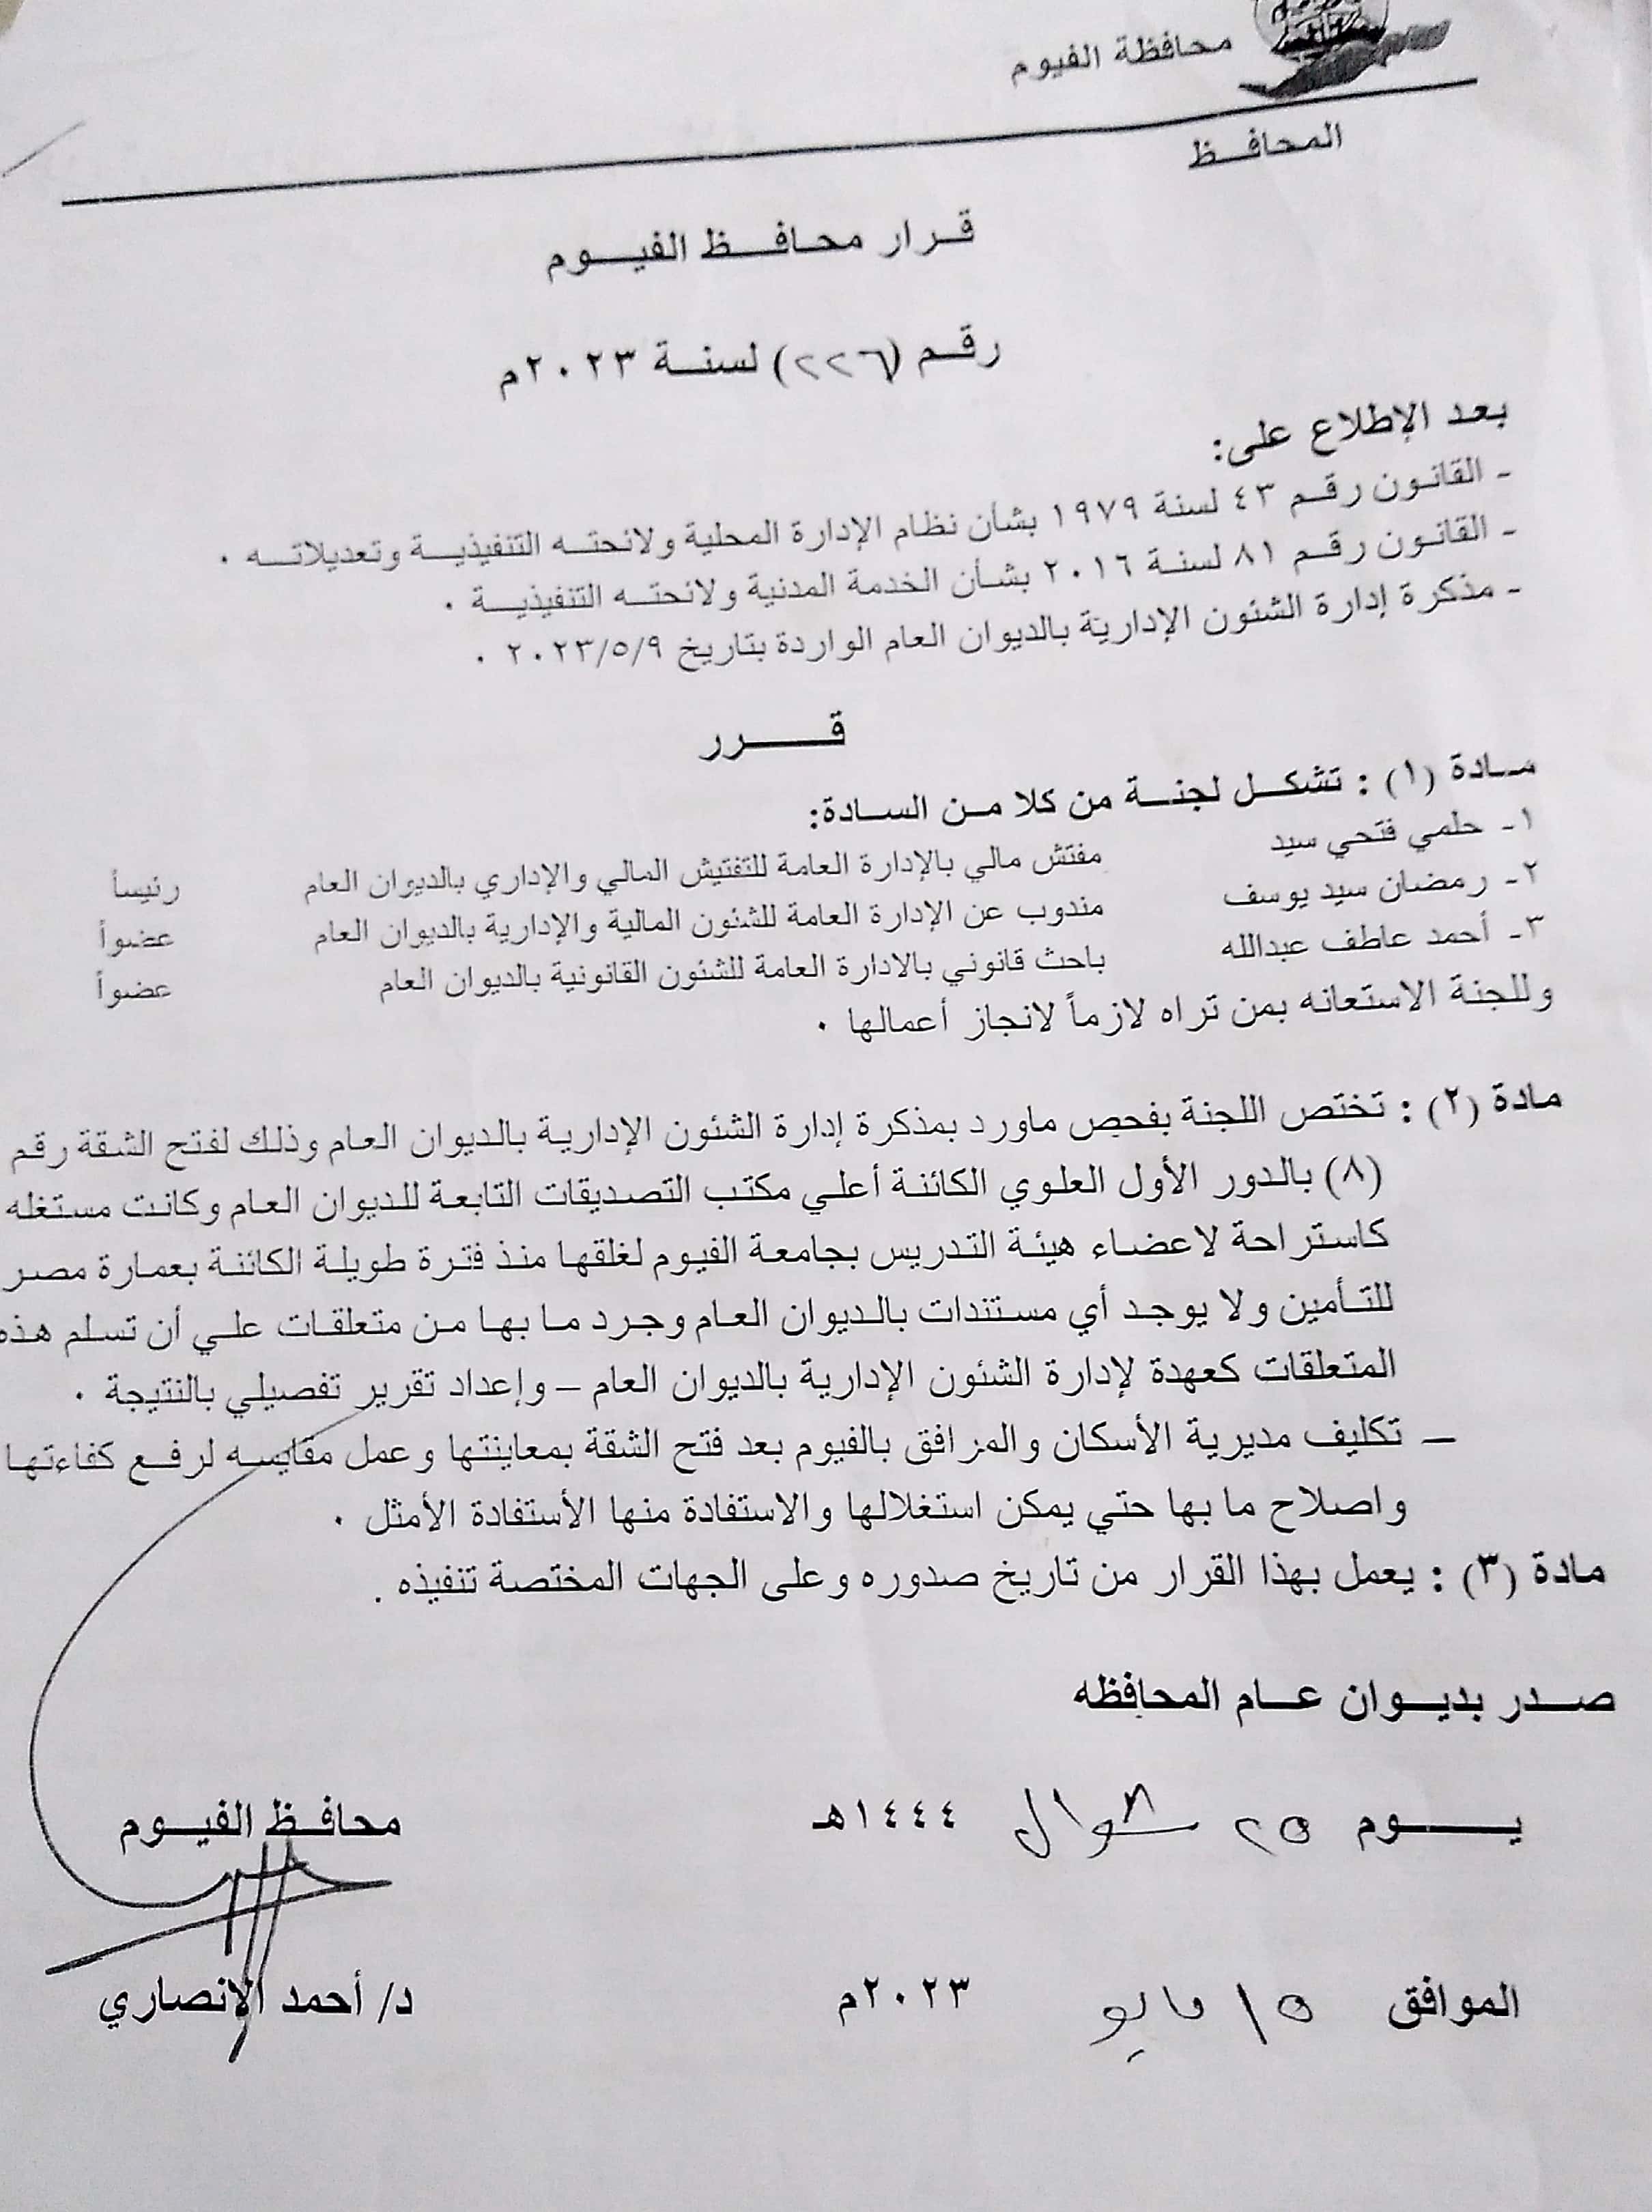 محافظة الفيوم
المحافـــظ
قـرار محـافــظ الفيـــوم
رقـم (٢٢٦) لسنــة ٢٠٢٣م
بعد الإطلاع على:
- القانون رقـم ٤٣ لسنة ١٩٧٩ بشأن نظام الإدارة المحلية ولائحتـه التنفيذيــة وتعديلاتــه ٠
- القانون رقـم ٨١ لسنـة ٢٠١٦ بشأن الخدمة المدنية ولائحتـه التنفيذيــة ٠
- مذكرة إدارة الشئون الإدارية بالديوان العام الواردة بتاريخ ٢٠٢٣/٥/٩ ٠
قــــرر
مــادة (١) : تشكــل لجنــة من كلا مـن الســادة:
١- حلمي فتحي سيد مفتش مالي بالإدارة العامة للتفتيش المالي والإداري بالديوان العام رئيساً
٢- رمضان سيد يوسف مندوب عن الإدارة العامة للشئون المالية والإدارية بالديوان العام عضواً
٣- أحمد عاطف عبدالله باحث قانوني بالادارة العامة للشئون القانونية بالديوان العام عضواً
وللجنة الاستعانه بمن تراه لازماً لانجاز أعمالها ٠
مادة (٢) : تختص اللجنة بفحص ماورد بمذكرة إدارة الشئون الإدارية بالديوان العام وذلك لفتح الشقة رقم
(٨) بالدور الأول العلوي الكائنة أعلي مكتب التصديقات التابعة للديوان العام وكانت مستغله
كاستراحة لاعضاء هيئة التدريس بجامعة الفيوم لغلقها منذ فترة طويلة الكائنة بعمارة مصر
للتأمين ولا يوجد أي مستندات بالديوان العام وجرد ما بها من متعلقات علي أن تسلم هذه
المتعلقات كعهدة لإدارة الشئون الإدارية بالديوان العام – وإعداد تقرير تفصيلي بالنتيجة ٠
– تكليف مديرية الأسكان والمرافق بالفيوم بعد فتح الشقة بمعاينتها وعمل مقايسه لرفع كفاءتها
واصلاح ما بها حتي يمكن استغلالها والاستفادة منها الأستفادة الأمثل ٠
مادة (٣) : يعمل بهذا القرار من تاريخ صدوره وعلى الجهات المختصة تنفيذه .
صــدر بديــوان عــام المحافظه
يـــــوم ٢٥ شوال ١٤٤٤هـ
محافــظ الفيــوم
الموافق ١٥ مايو ٢٠٢٣م
د/ أحمد الانصاري